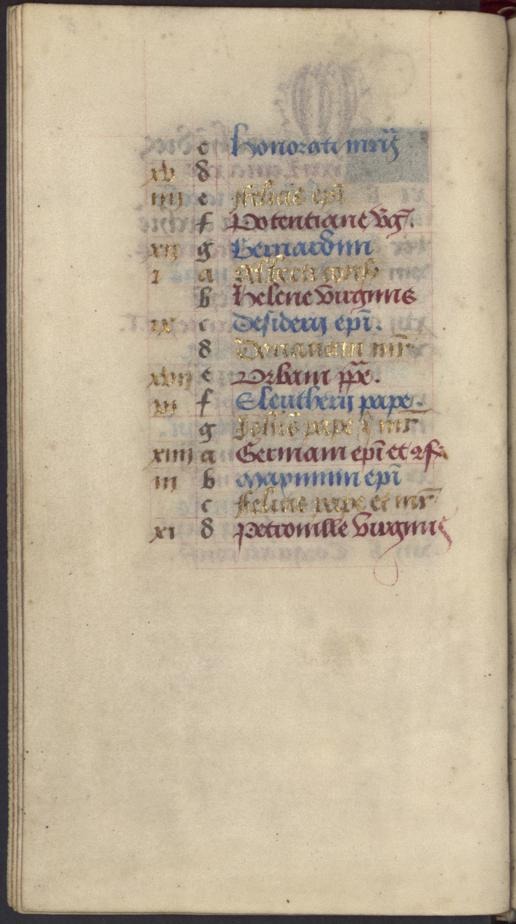 c Honorati mrijs
xv d
iiij e Felicis epi
f Potentiane vg.
xij g Bernardini
i a
b Helene virginis
ix c Desiderij epi.
d Donatiani mr
xvij e Urbani ppe.
vi f Eleutherij pape.
g pape mr
xiiij a Germani epi et cf.
iij b Maximini epi
c Felicis pape et mr
xi d Petronille virginis